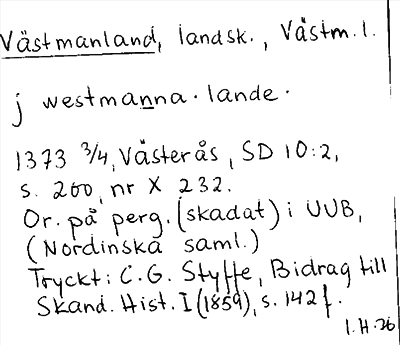 Västmanland, landsk., Västm. l.
j westmanna · lande ·
1373 3/4, Västerås, SD 10:2,
s. 200, nr X 232.
Or. på perg. (skadat) i UUB,
(Nordinska saml.)
Tryckt: C.G. Styffe, Bidrag till
Skand. Hist. I (1859), s. 142 f.
I.H. 26